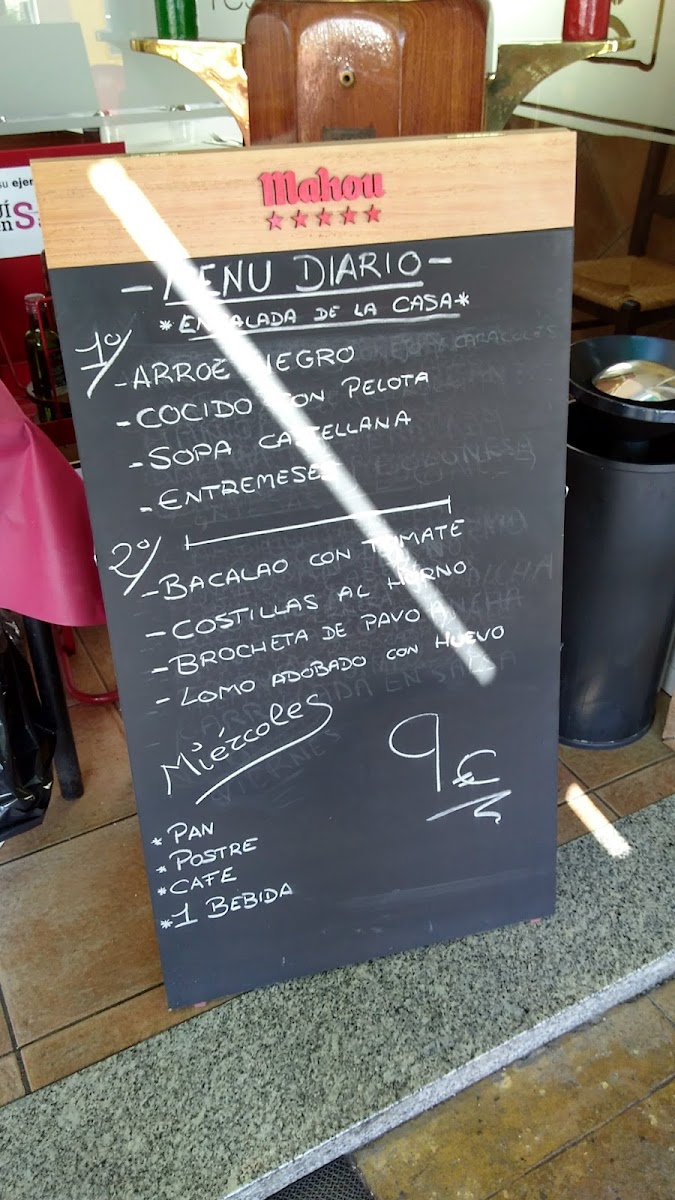 su ejem
Mahou
- MENU DIARIO -
* ENSALADA DE LA CASA *
1º/
- ARROZ NEGRO
- COCIDO CON PELOTA
- SOPA CASTELLANA
- ENTREMESES
2º/
- BACALAO CON TOMATE
- COSTILLAS AL HORNO
- BROCHETA DE PAVO A
- LOMO ADOBADO CON HUEVO
Miércoles
9€
* PAN
* POSTRE
* CAFE
* 1 BEBIDA
CARACOLES
VIERNES